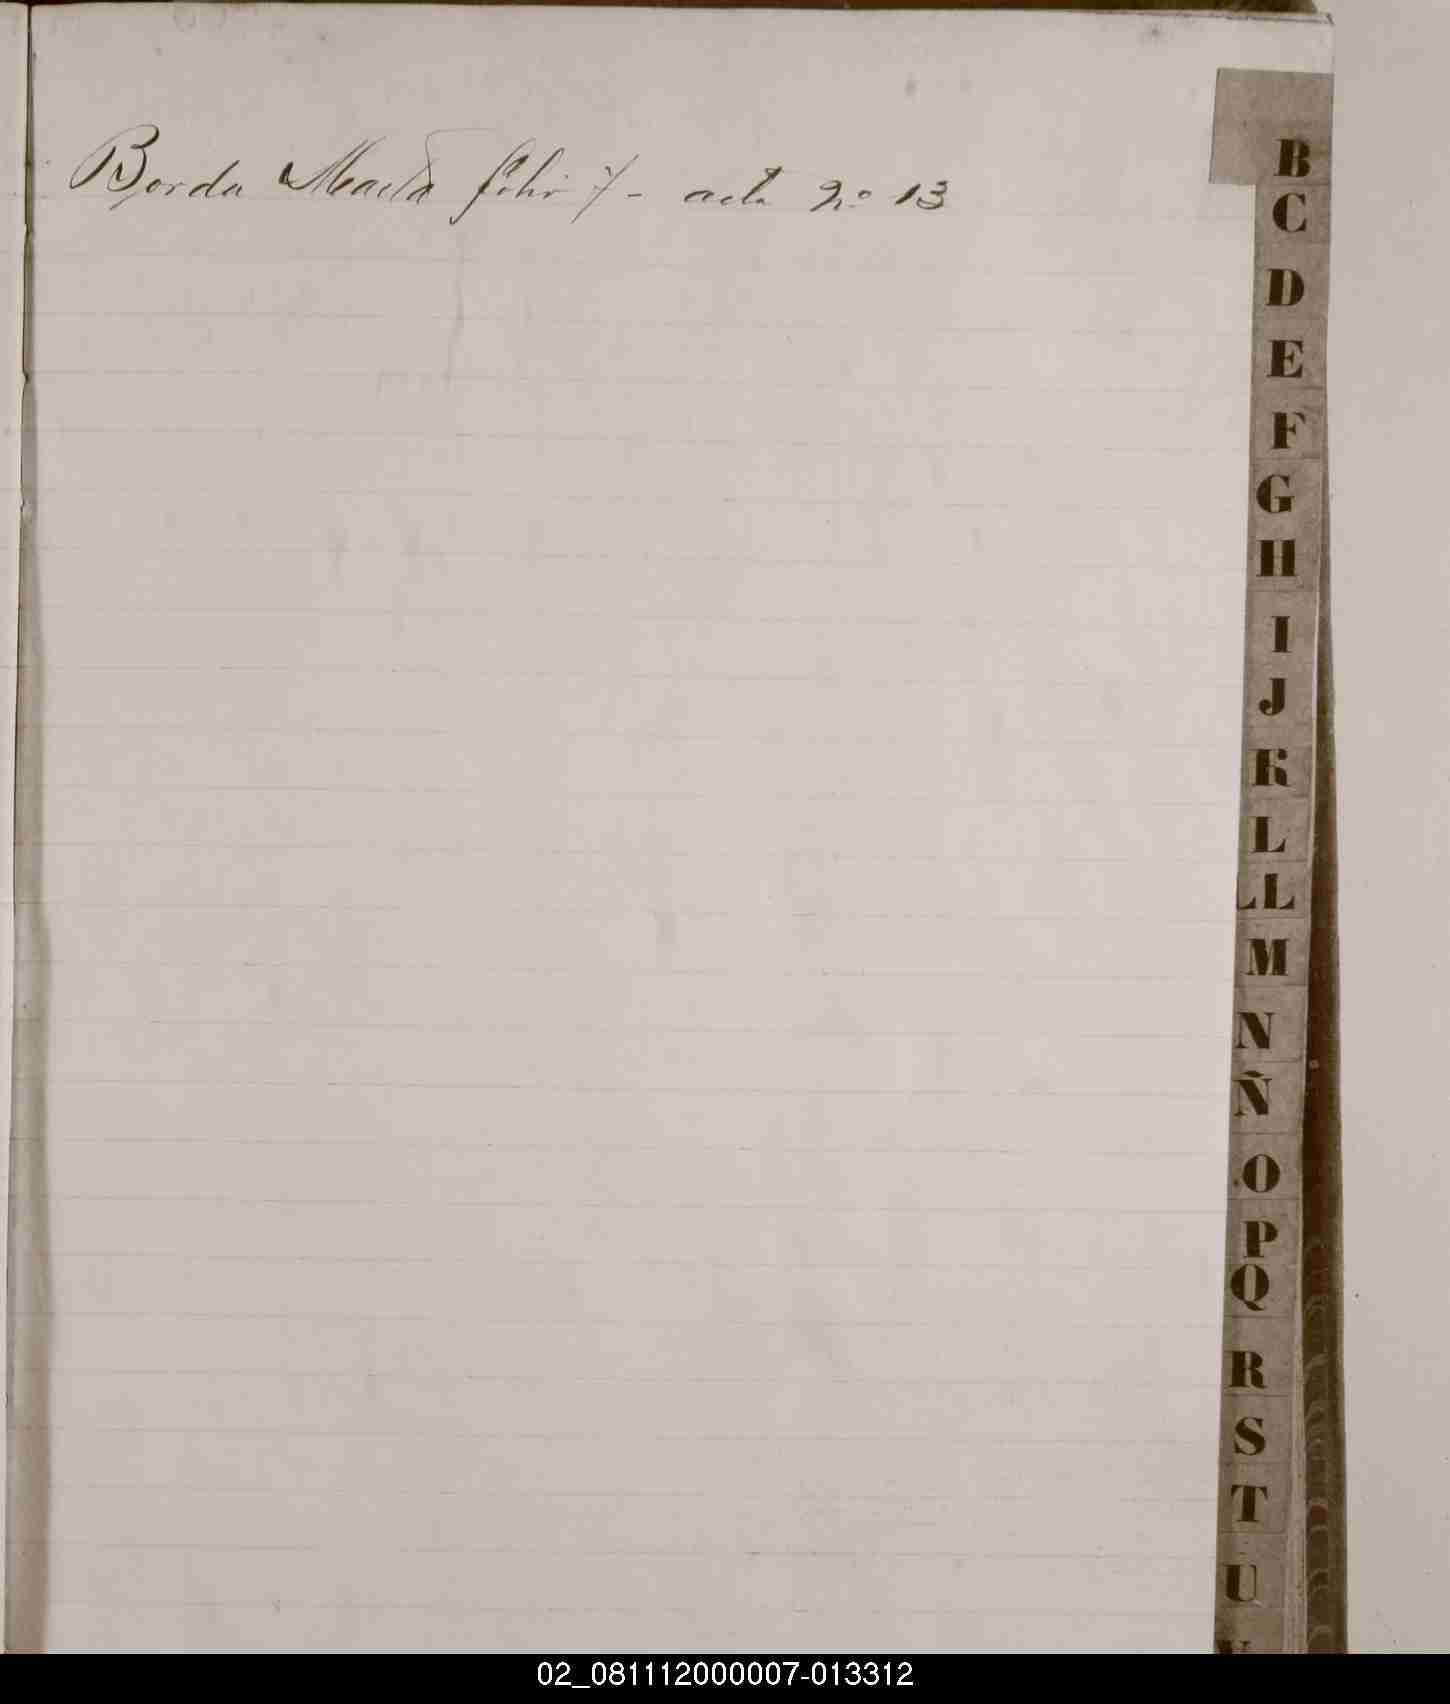 Borda Marta folio 7 - acta Nº 13
B
C
D
E
F
G
H
I
J
K
L
LL
M
N
Ñ
O
P
Q
R
S
T
U
V
02_081112000007-013312